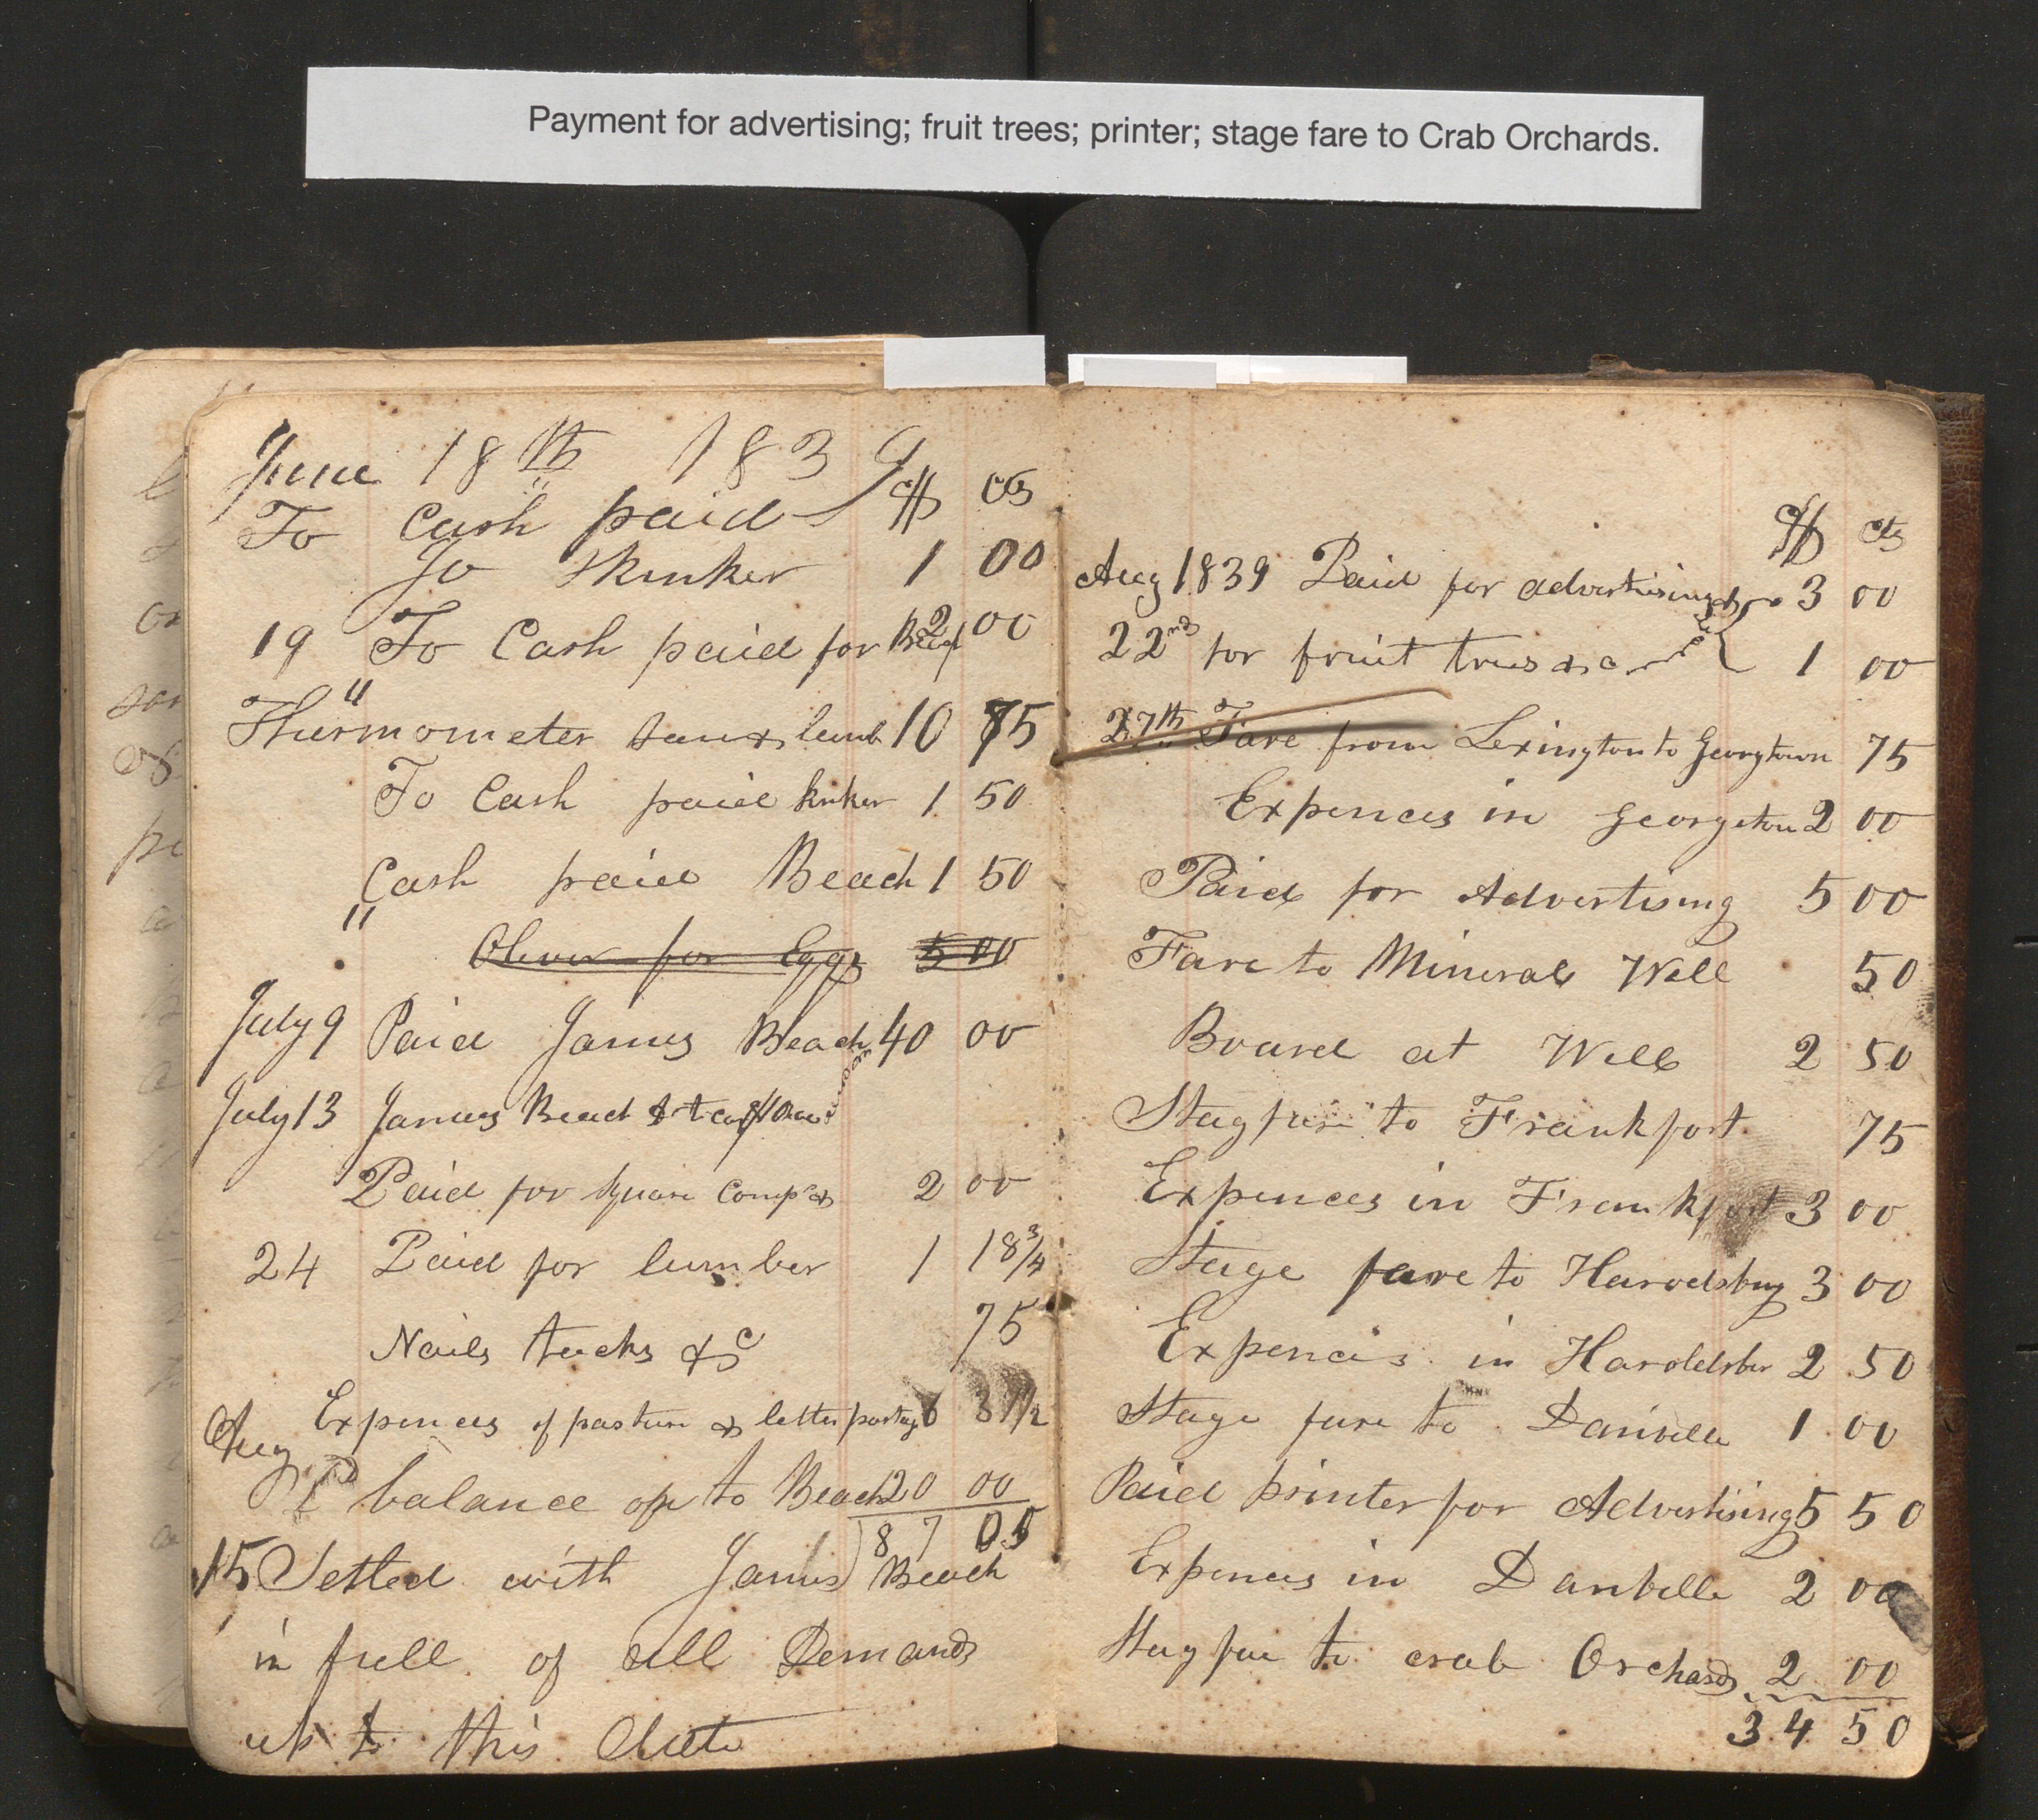 Payment for advertising; fruit trees; printer; stage fare to Crab Orchards.
June 18th 1839
To Cash paid $ cts
Jo Skinker 1 00
19 To Cash paid for Beef 2 00
"
Thurmometer lumb 10 75
To Cash paid kinker 1 50
Cash paid Beach 1 50
"
Oliver for Eggs 5 00
July 9 Paid James Beach 40 00
July 13 James Beach
Paid for Square Comps & 2 00
24 Paid for lumber 1 18 3/4
Nails tacks &c 75
Expences of pasture & letter postage 6 37 1/2
Aug
Pd balance to Beach 20 00
87 05
15 Setled with James Beach
in full of all Demands
up to this date
$ cts
Aug 1839 Paid for advertising & 3 00
22nd for fruit trees &c 1 00
27th Fare from Lexington to Georgtown 75
Expences in Georgetown 2 00
Paid for Advertising 5 00
Fare to Mineral Well 50
Board at Well 2 50
Stag fare to Frankfort 75
Expences in Frankfort 3 00
Stage fare to Harodsburg 3 00
Expencis in Haroldsbur 2 50
Stage fare to Danville 1 00
Paid printer for Advertising 5 50
Expences in Danville 2 00
Stag fare to crab Orchards 2 00
34 50